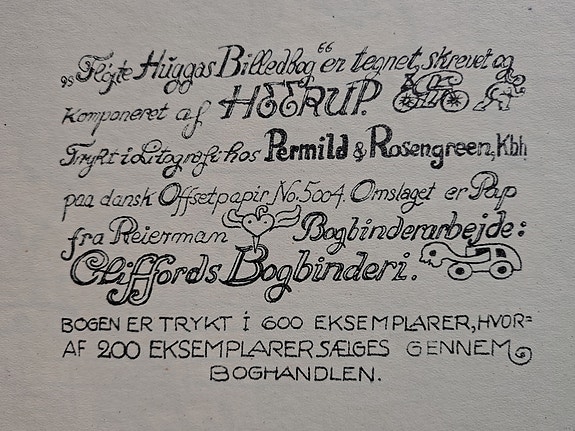 „Fløjte Huggas Billedbog“ er tegnet, skrevet og
Komponeret af HEERUP.
Trykt i Litografi hos Permild & Rosengreen, Kbh
paa dansk Offsetpapir No. 5004. Omslaget er Pap
fra Reierman Bogbinderarbejde:
Cliffords Bogbinderi.
BOGEN ER TRYKT I 600 EKSEMPLARER, HVOR=
AF 200 EKSEMPLARER SÆLGES GENNEM
BOGHANDLEN.